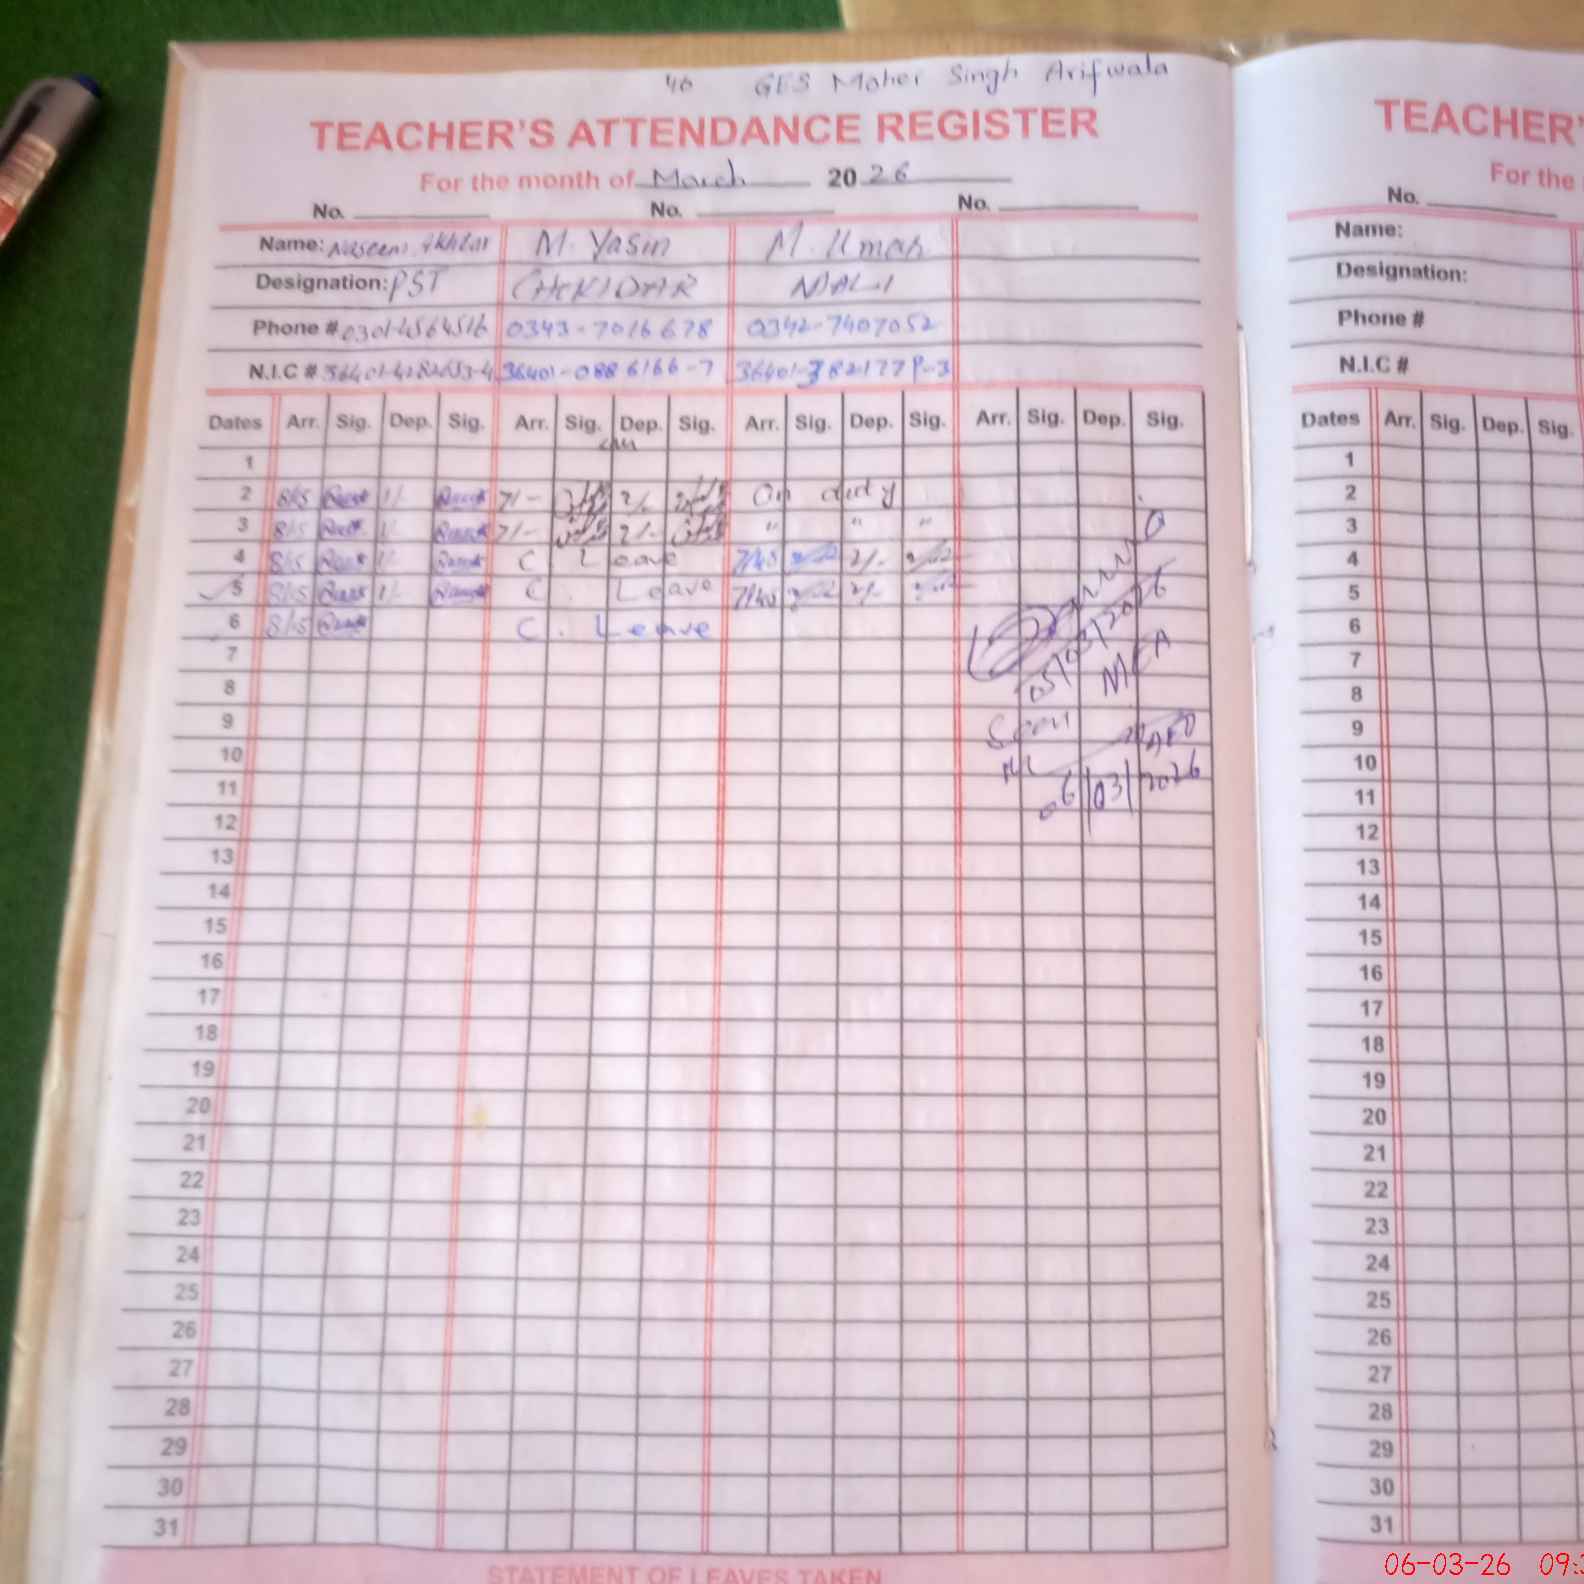 46 GES Maher Singh Arifwala
TEACHER'S ATTENDANCE REGISTER
For the month of March 2026
No. No. No.
Name: Naseem Akhtar M. Yasin M. Umar
Designation: PST CHOKIDAR MALI
Phone # 0301-4564516 0343-7016678 0342-7407052
N.I.C # 36401-0886166-7
Dates Arr. Sig. Dep. Sig. Arr. Sig. Dep. Sig. Arr. Sig. Dep. Sig. Arr. Sig. Dep. Sig.
1
2 8/15 1/- 7/- 2/- On duty
3 8/15 1/- 7/- 2/- " " "
4 8/15 1/- C Leave 7/45 2/-
5 8/15 1/- C. Leave 7/45 2/-
6 8/15 C. Leave
05/03/2026
MEA
7
8
9 Seen AEO
10
11 06/03/2026
12
13
14
15
16
17
18
19
20
21
22
23
24
25
26
27
28
29
30
31
STATEMENT OF LEAVES TAKEN
TEACHER'
For the
No.
Name:
Designation:
Phone #
N.I.C #
Dates Arr. Sig. Dep. Sig.
1
2
3
4
5
6
7
8
9
10
11
12
13
14
15
16
17
18
19
20
21
22
23
24
25
26
27
28
29
30
31
06-03-26 09: